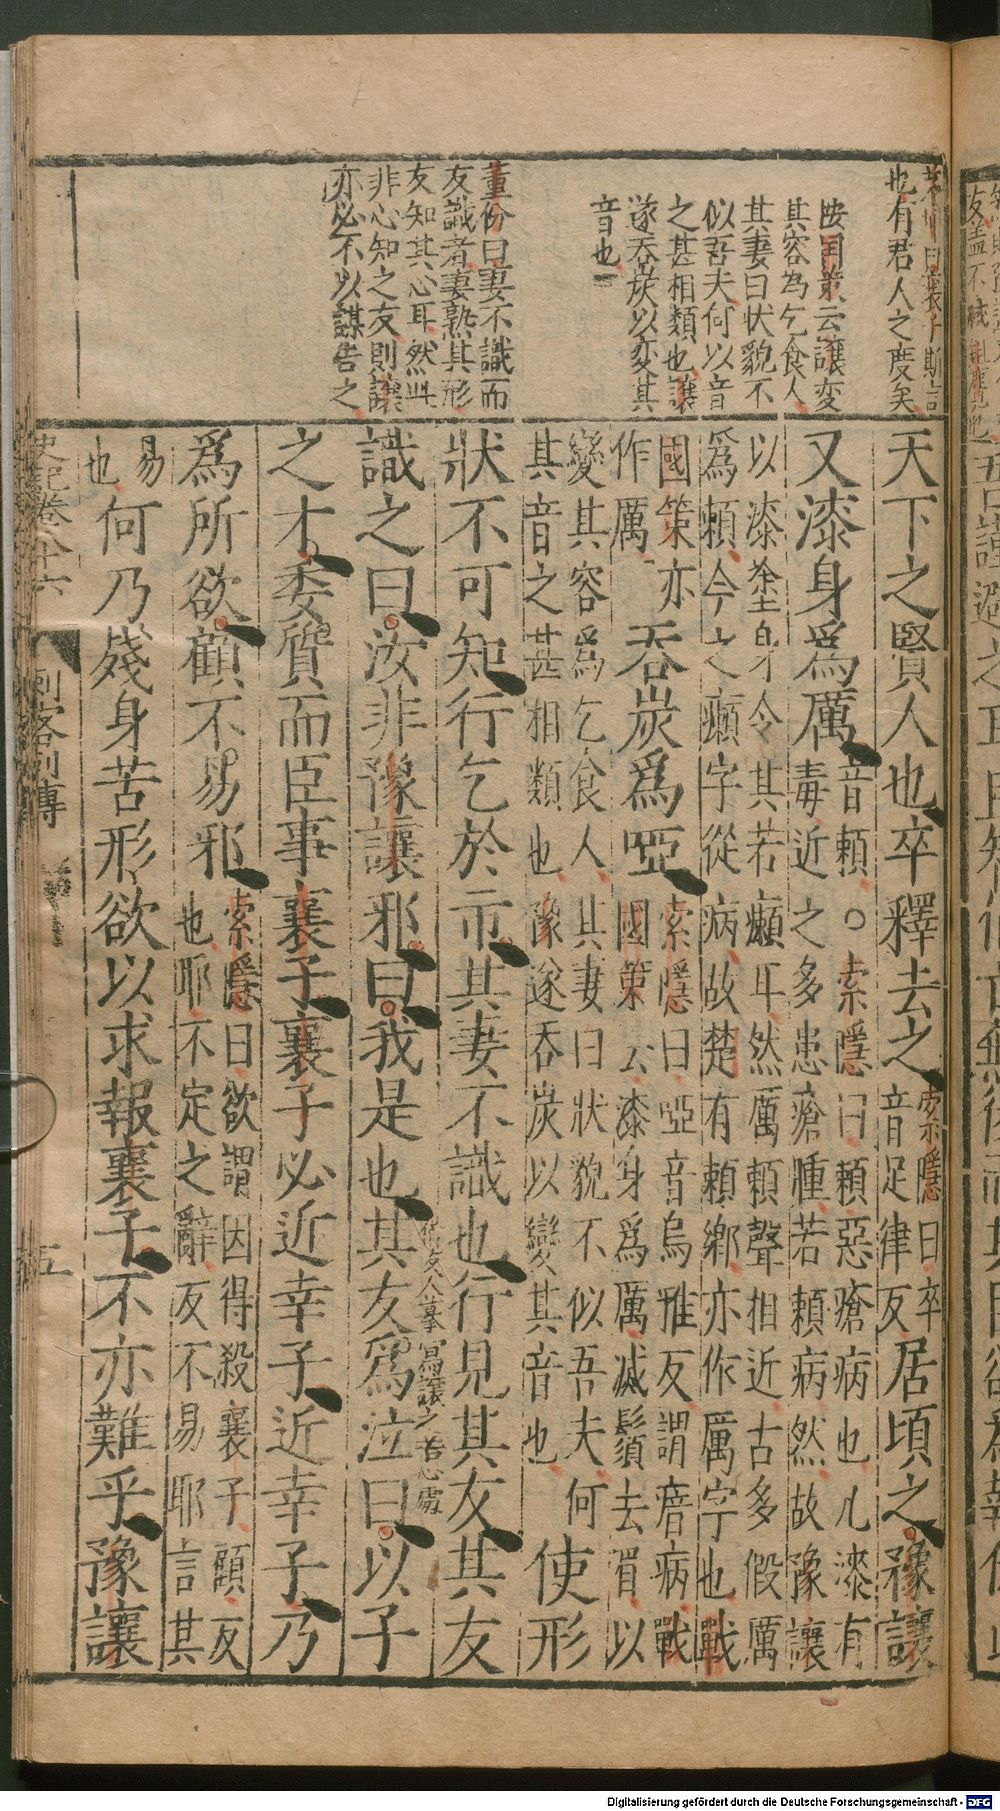 也有君人之度矣
按国策云讓変
其容為乞食人
其妻曰状貌不
似吾夫何以音
之甚相類也讓
遂吞炭以変其
音也
董份曰妻不識而
友識者妻熟其形
友知其心耳然此
非心知之友則讓
亦必不以謀告之
天下之賢人也卒釋去之
索隱曰卒
音足律反
居頃之豫讓
又漆身爲厲
音賴○索隱曰賴惡瘡病也凡漆有
毒近之多患瘡腫若賴病然故豫讓
以漆塗身令其若癩耳然厲賴聲相近古多假厲
爲賴今之癩字從病故楚有賴鄉亦作厲字也戰
國策亦
作厲
吞炭爲啞
索隱曰啞音烏雅反謂瘖病戰
國策云漆身爲厲滅鬚去眉以
變其容爲乞食人其妻曰狀貌不似吾夫何
其音之甚相類也豫遂吞炭以變其音也
使形
狀不可知行乞於市其妻不識也行見其友其友
識之曰汝非豫讓邪曰我是也其友爲泣曰以子
之才委質而臣事襄子襄子必近幸子近幸子乃
爲所欲顧不易邪
索隱曰欲謂因得殺襄子顧反
也耶不定之辭反不易耶言其
易
也
何乃殘身苦形欲以求報襄子不亦難乎豫讓
史記卷八十六
刺客列傳
五
Digitalisierung gefördert durch die Deutsche Forschungsgemeinschaft - DFG